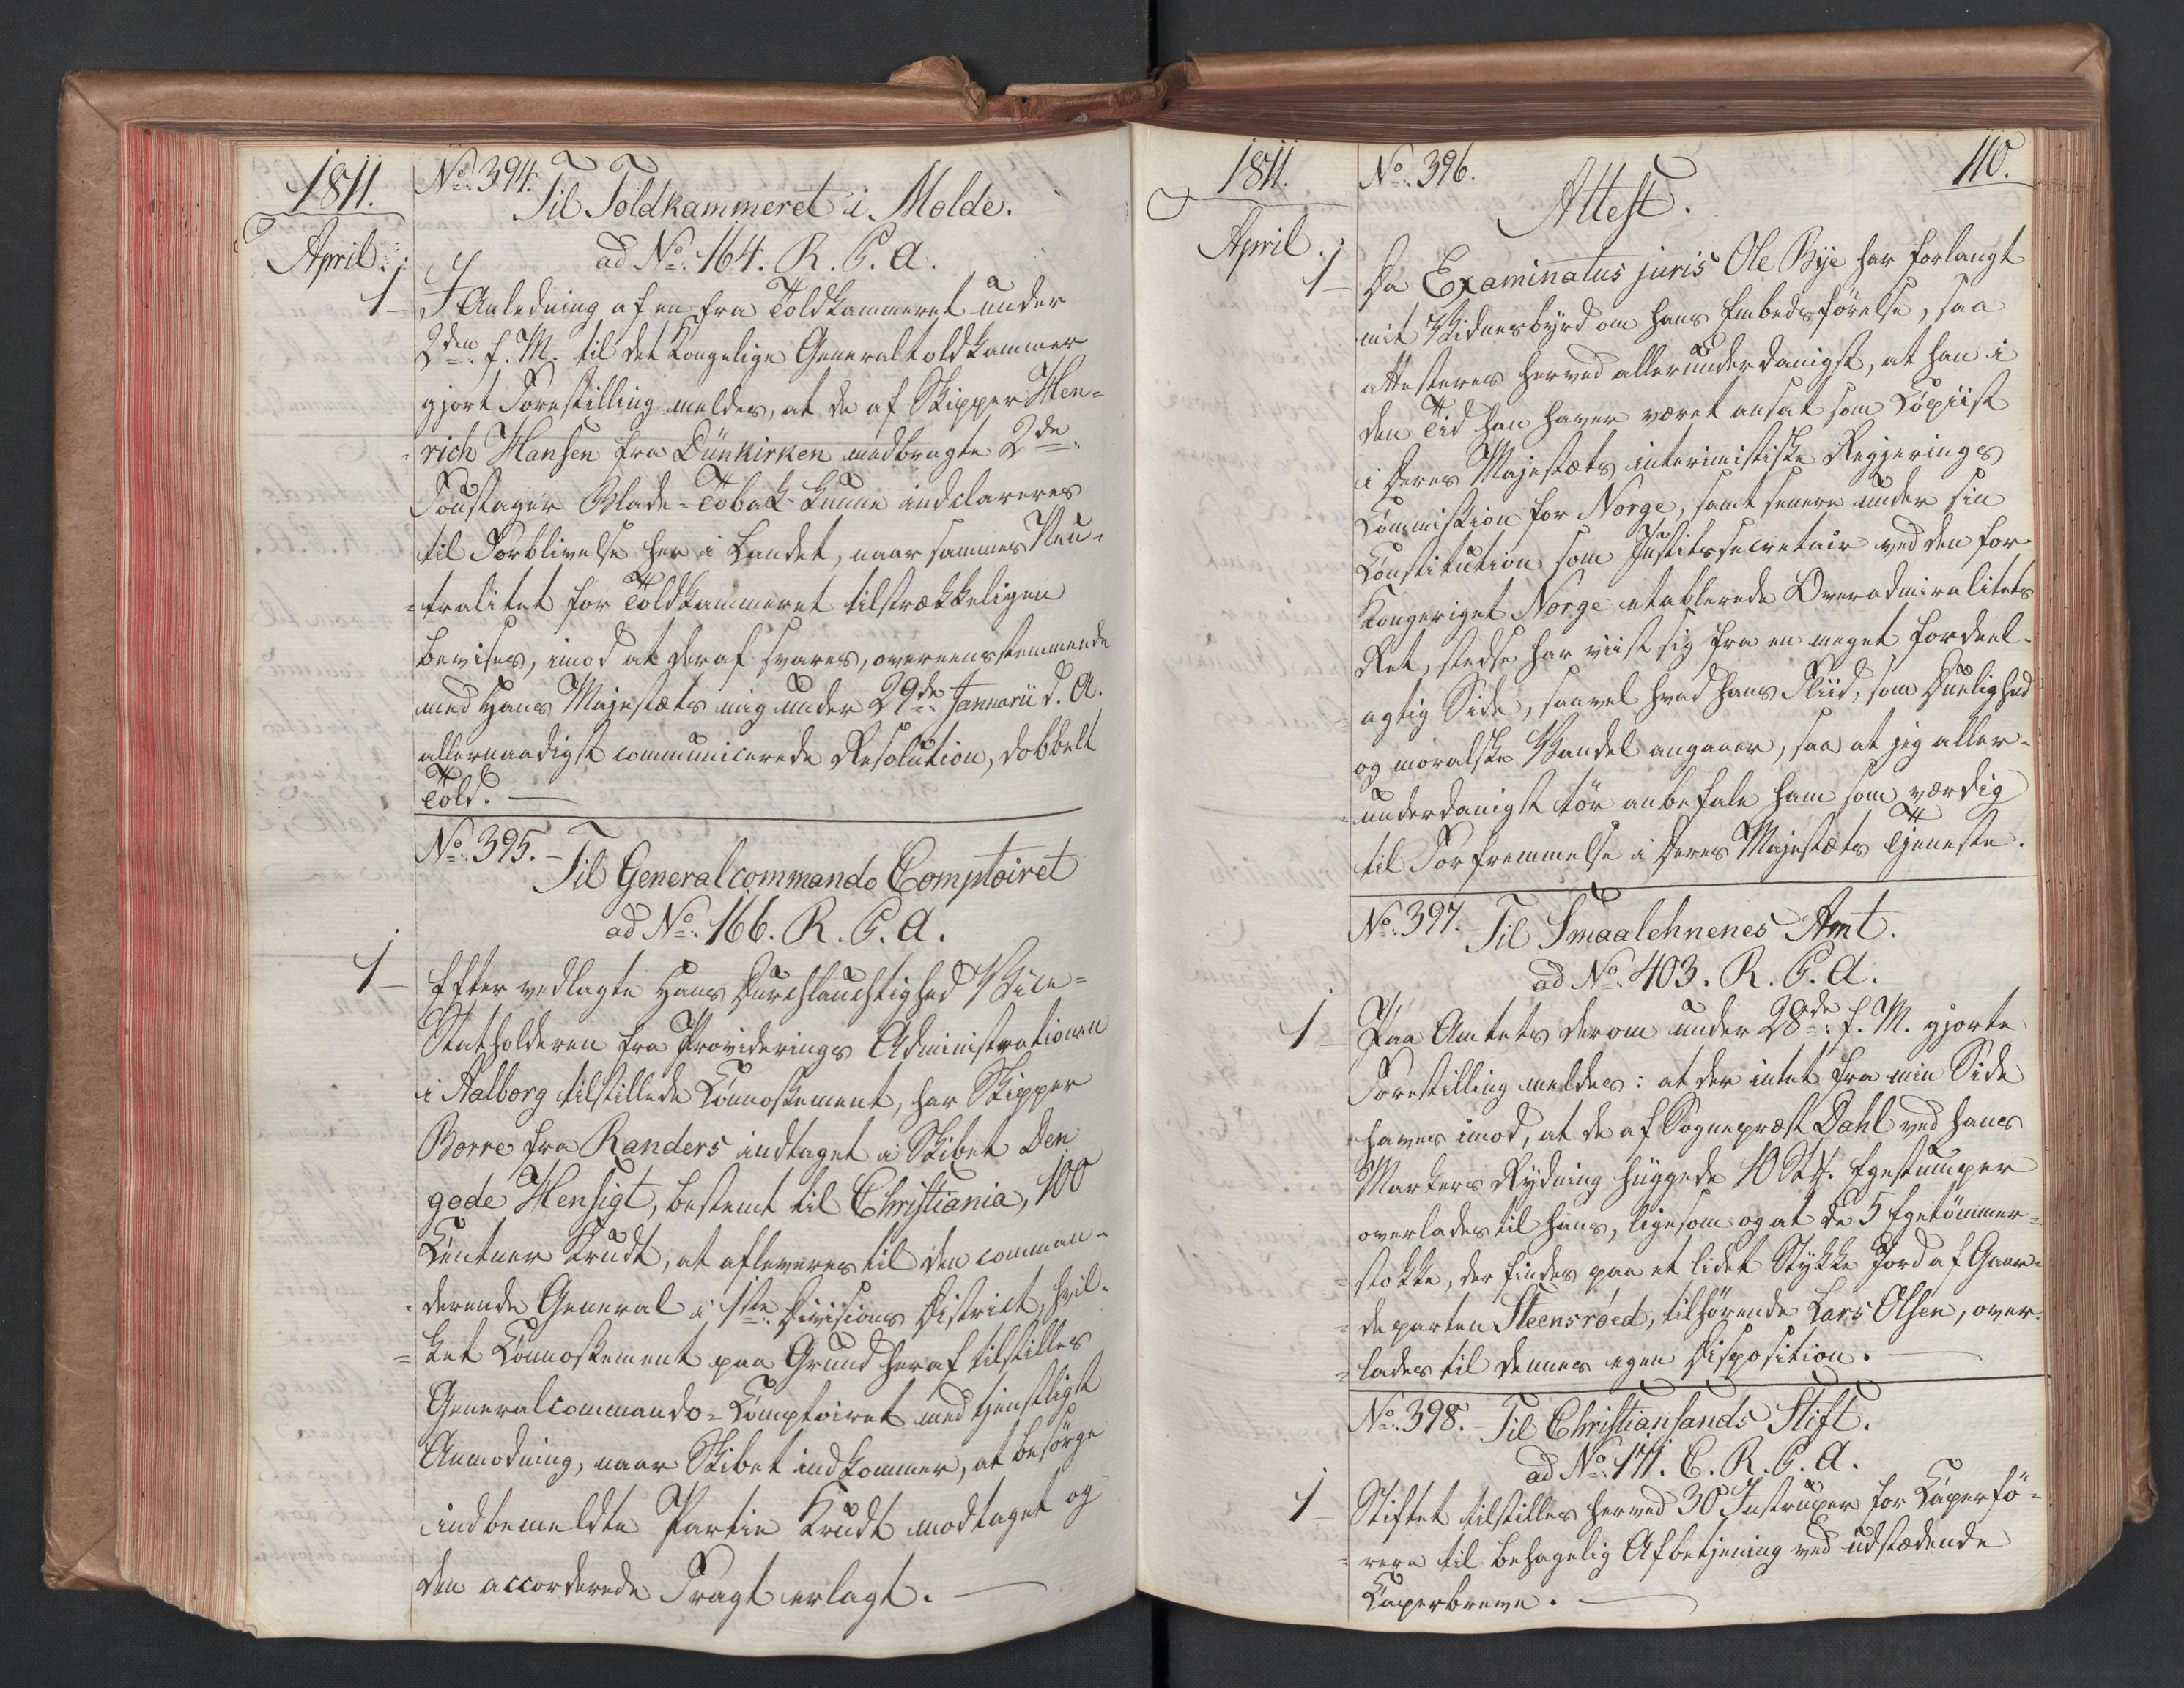 1811.
April.
No. 394.
Til Toldkammeret i Molde.
ad No. 164. R. C. A.
1 – I Anledning af en fra Toldkammeret under
2den f. M. til det Kongelige Generaltoldkammer
gjort Forestilling meldes, at de af Skipper Hen=
=rich Hansen fra Dünkirken medbragte 2de
Foustager Blade-Tobak kunne indclareres
til Forblivelse her i Landet, naar sammes Neu-
=tralitet for Toldkammeret tilstrækkeligen
bevises, imod at deraf svares, overeensstemmende
med Hans Majestæts mig under 29de Januarii d. A.
allernaadigst communicerede Resolution, dobbelt
Told. —
No. 395. –
Til Generalcommando Comptoiret
ad No. 166. R. C. A.
1 – Efter vedlagte Hans Durchlauchtighed Vice=
Statholderen fra Providerings Administrationen
i Aalborg tilstillede Connossement, har Skipper
Borre fra Randers indtaget i Skibet Den
gode Hensigt, bestemt til Christiania, 100
Centner Krudt, at afleveres til den comman-
=derende General i 1ste Divisions District, hvil-
=ket Connossement paa Grund heraf tilstilles
Generalcommando-Comptoiret med tjenstligst
Anmodning, naar Skibet indkommer, at besörge
indbemeldte Partie Krudt modtaget og
den accorderede Fragt erlagt. —
1811.
April.
110.
No. 396.
Attest.
1 – Da Examinatus juris Ole Bye har forlangt
mit Vidnesbyrd om hans Embedsförelse, saa
attesteres herved allerunderdanigst, at han i
den Tid han haver været ansat som Copiist
i Deres Majestæts interimistiske Regjerings
Commission for Norge, samt senere under sin
Constitution som Justitssecretair ved den for
Kongeriget Norge etablerede Overadmiralitets
Ret, stedse har viist sig fra en meget fordeel-
agtig Side, saavel hvad hans Fliid, som Duelighed
og moralske Vandel angaaer, saa at jeg aller-
=underdanigst tör anbefale ham som værdig
til Forfremmelse i Deres Majestæts Tjeneste.
No. 397. Til Smaalehnenes Amt.
ad No. 403. R. C. A.
1 – Paa Amtets derom under 28de f. M. gjorte
Forestilling meldes: at der intet fra min Side
haves imod, at de af Sognepræst Dahl ved hans
Markers Rydning huggede 10 Stk. Egestumper
overlades til hans, ligesom og at de 5 Egetömmer-
=stokke, der findes paa et lidet Stykke Jord af Gaar-
=departen Steensröed, tilhörende Lars Olsen, over-
=lades til dennes egen Disposition. —
No. 398. – Til Christiansands Stift.
ad No. 171. C. R. C. A.
1 – Stiftet tilstilles herved 30 Instruxer for Caperfö-
=rere til behagelig Afbetjening ved udstædende
Caperbreve. —